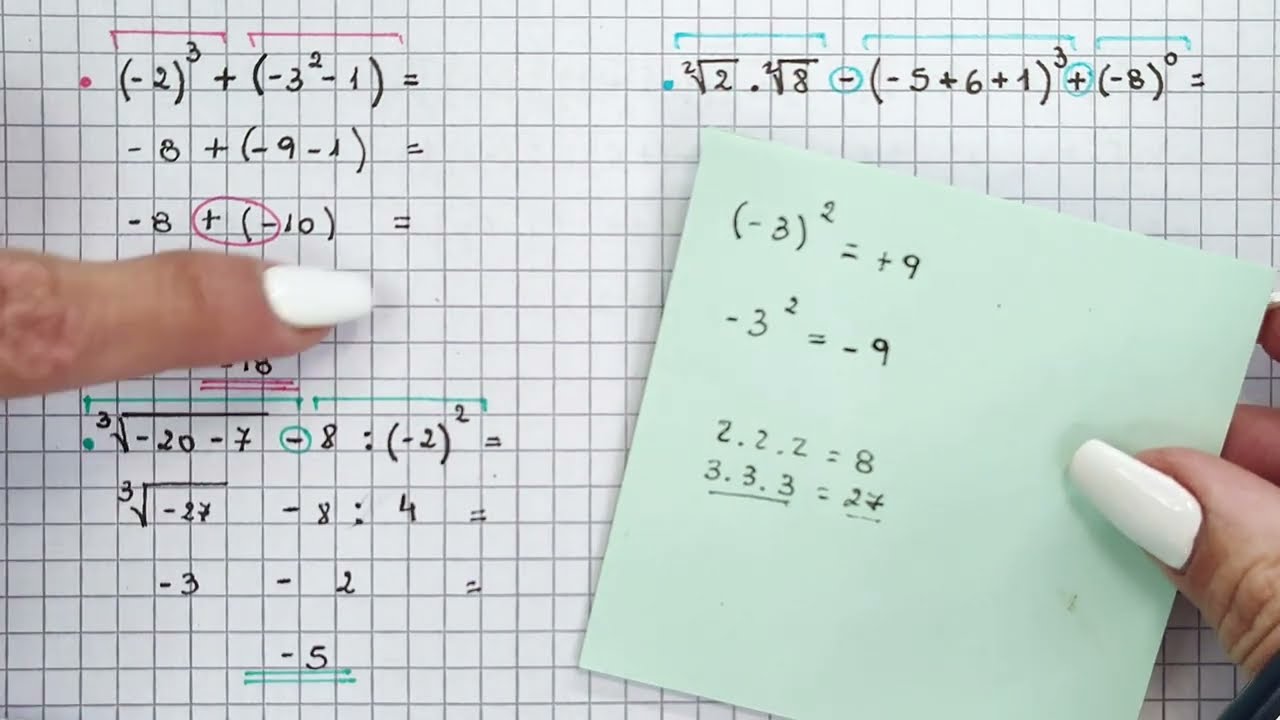 (-2)³ + (-3² - 1) =
- 8 + (- 9 - 1) =
- 8 + (-10) =
-18
³√-20 - 7 - 8 : (-2)² =
³√-27 - 8 : 4 =
-3 - 2 =
- 5
²√2 . ²√8 - (- 5 + 6 + 1)³ + (-8)⁰ =
(-3)² = +9
-3² = -9
2.2.2 = 8
3.3.3 = 27